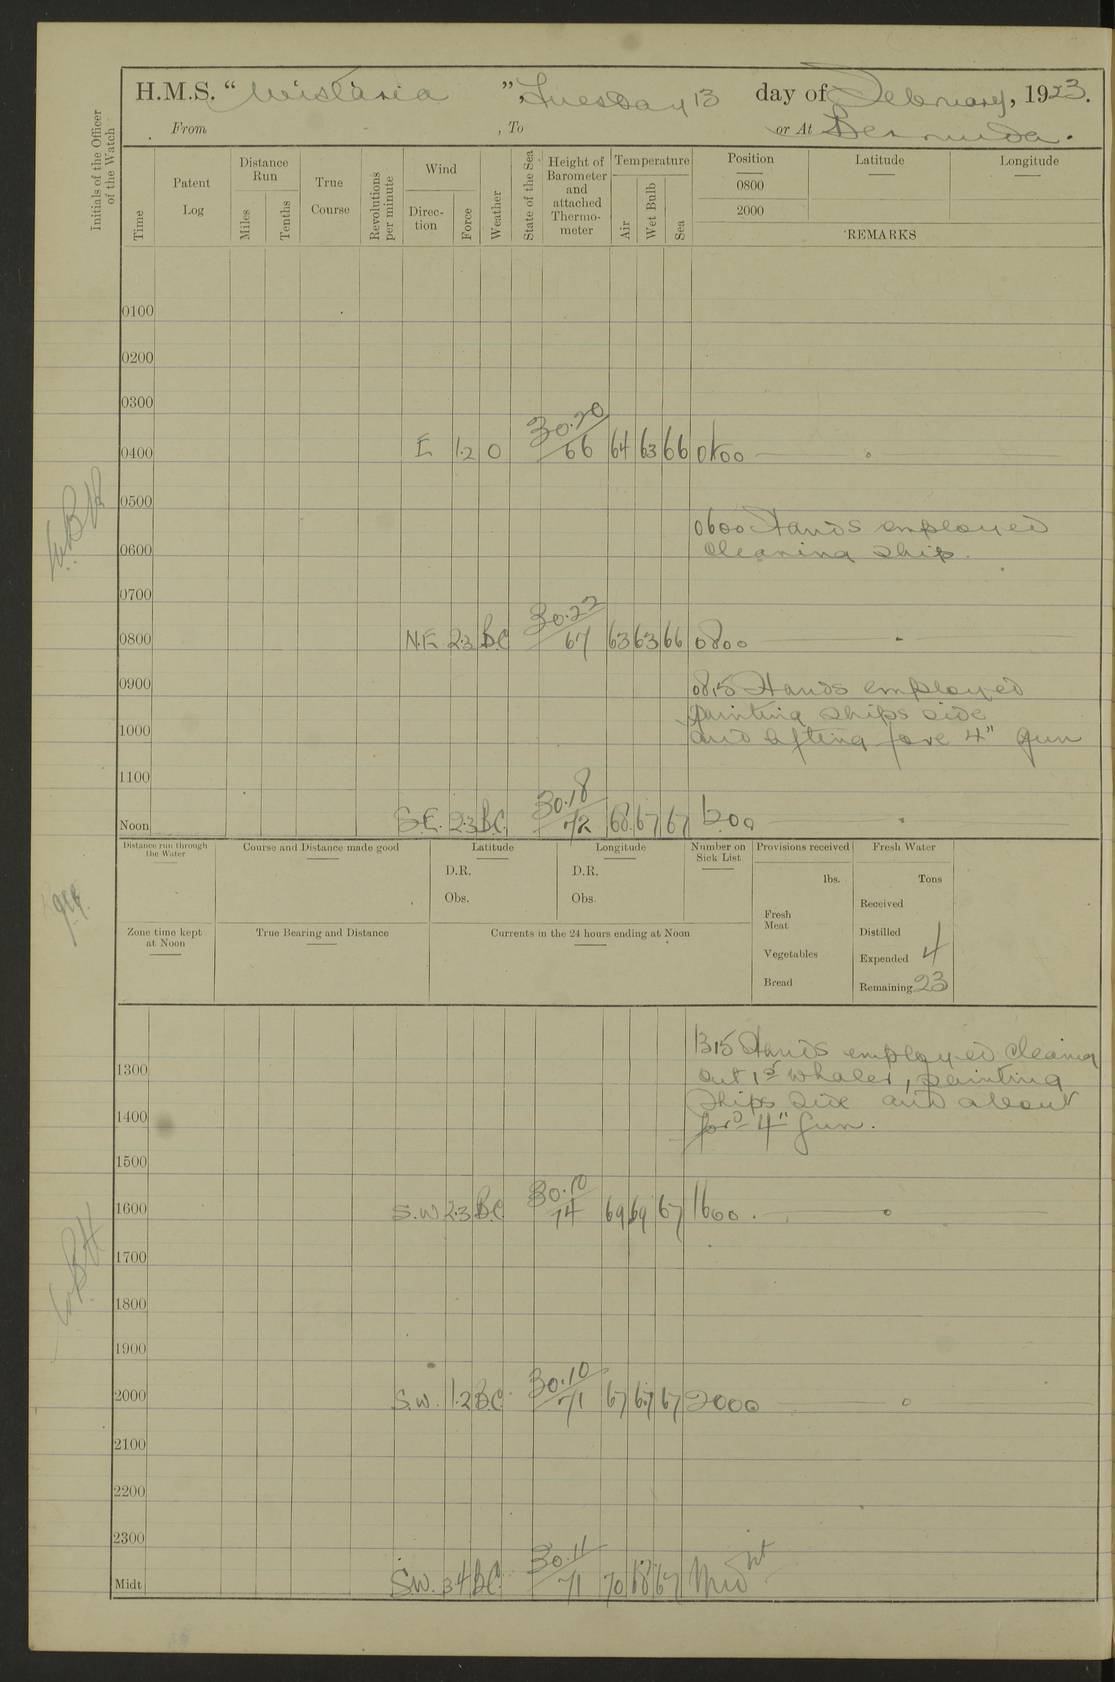 H.M.S. “Wistaria”, Tuesday 13 day of February, 1923.
From , To or At Bermuda.
Initials of the Officer of the Watch
Time
Patent Log
Distance Run
Miles
Tenths
True Course
Revolutions per minute
Wind
Direc-tion
Force
Weather
State of the Sea
Height of Barometer and attached Thermo-meter
Temperature
Air
Wet Bulb
Sea
Position
0800
2000
Latitude
Longitude
REMARKS
0100
0200
0300
0400 E 1.2 O 30.20/66 64 63 66 0400
0500
0600 Hands employed
cleaning ship.
0600
0700
0800 N.E 2.3 B.C 30.22/67 63 63 66 0800
0900
0815 Hands employed
painting ships side
and afting fore 4" gun
1000
1100
Noon S.E. 2.3 B.C. 30.18/72 68 67 67 1200
Distance run through the Water
Course and Distance made good
Latitude
D.R.
Obs.
Longitude
D.R.
Obs.
Number on Sick List
Provisions received
lbs.
Fresh Meat
Vegetables
Bread
Fresh Water
Tons
Received
Distilled
Expended 4
Remaining 23
Zone time kept at Noon
True Bearing and Distance
Currents in the 24 hours ending at Noon
1315 Hands employed cleaning
out 1st whaler, painting
ships side and about
for'd 4" gun.
1300
1400
1500
1600 S.W 2.3 B.C 30.10/74 69 69 67 1600.
1700
1800
1900
2000 S.W. 1.2 B.C. 30.10/71 67 67 67 2000
2100
2200
2300
Midt S.W. 3.4 B.C. 30.11/71 70 68 67 Midnt